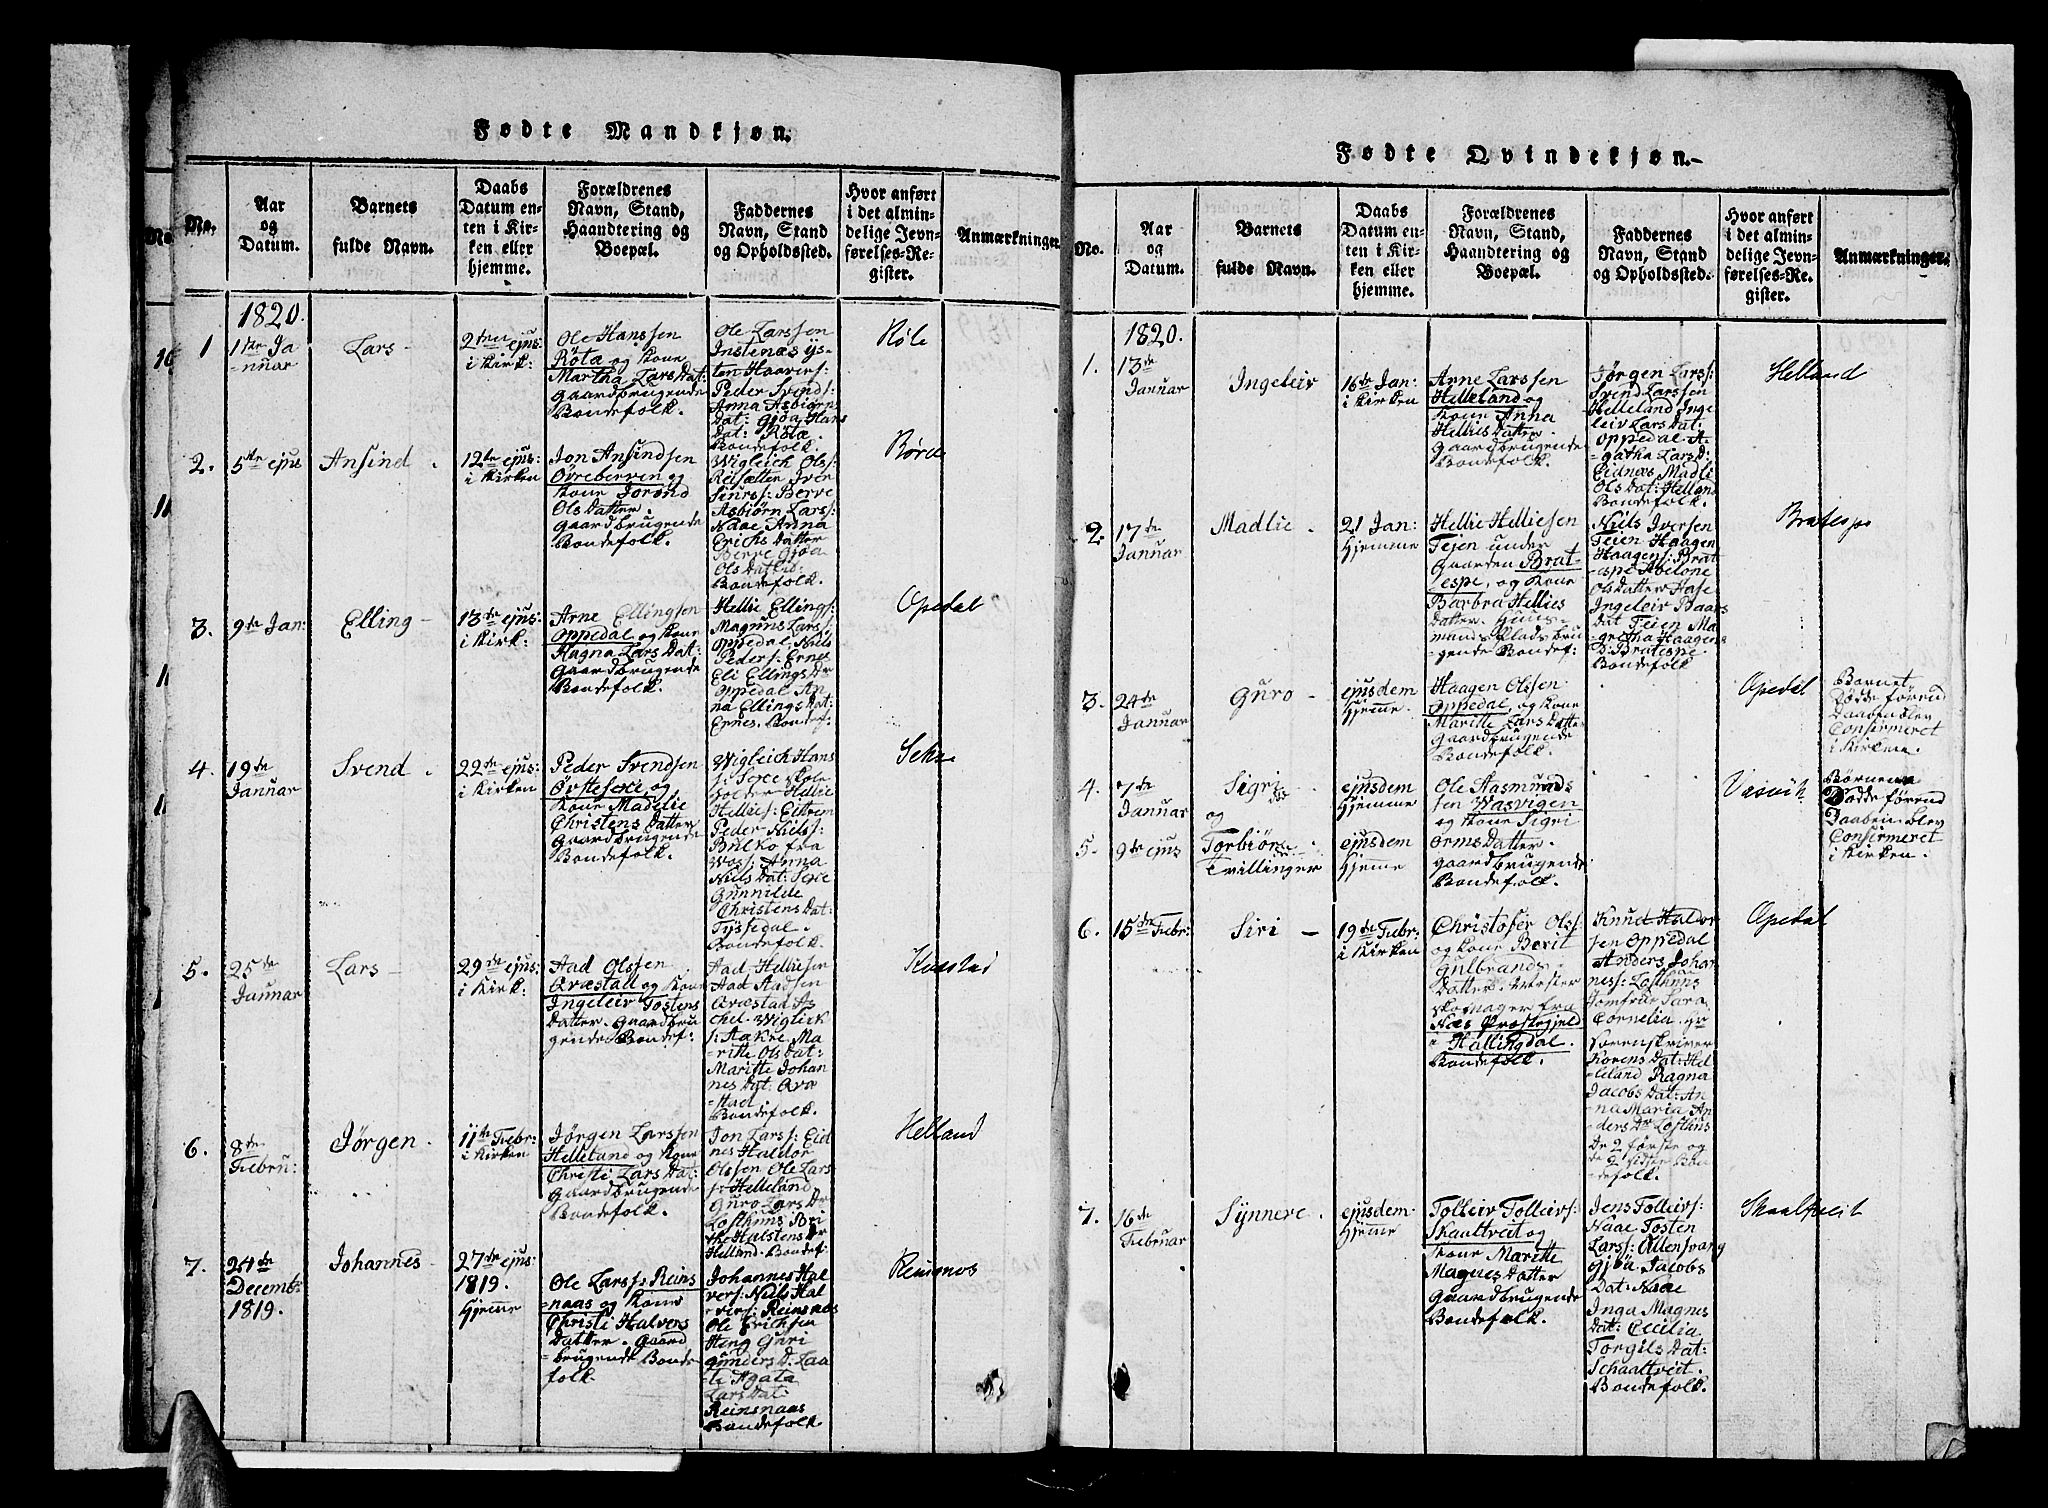 Fødte Mandkjøn.
No.
Aar
og
Datum.
Barnets
fulde Navn.
Daabs
Datum en-
ten i Kir-
ken eller
hjemme.
Forældrenes
Navn, Stand,
Haandtering og
Boepæl.
Faddernes
Navn, Stand
og Opholdssted.
Hvor anført
i det almin-
delige Jevn-
førelses-Re-
gister.
Anmærkninger.
1820.
1
1ste Ja-
-nuar
Lars -
2den ejus:
i Kirk:
Ole Hanssen
Røtæ og Kone
Martha Lars Dat:
Gaardbrugende
Bondefolk.
Ole Larssen
Instenæs
ten Haavers:
Peder Svends:
Anna Asbiørns
Dat: Gjøa Hans
Dat: Røtæ.
Bondefolk.
Røte
2.
5te ejus
Ansind .
12te ejus:
i Kirken
Jon Ansindsen
Øvreberven og
Kone Jorønd
Ols Datter.
Gaardbrugende
Bondefolk.
Wigleich Ols:
Reisæter Iver
Siurs: Berve
Asbiørn Lars:
Naae Anna
Erichs Datter
Berve Gjøa
Ols Dat
Bondefolk.
3.
9de Jan:
Elling -
13de ejus:
i Kirk:
Arne Ellingsen
Oppedal og Kone
Magna Lars Dat:
Gaardbrugende
Bondefolk.
Hellie Ellings:
Maguns Lars:
Oppedal Niels
Peders: Ernes
Eli Ellings Dr
Oppedal An-
na Ellings Dat:
Ernes. Bondef:
Opedal
4.
19de
Januar
Svend .
22de ejus:
i Kirken
Peder Svendsen
Øvstesexe og
Kone Madelie
Christens Datter
Gaardbrugende
Bondefolk.
Wigleich Hans
s: Sexe Skole
holder Hellie
Hellies: Eitrem
Peder Niels:
Bulko fra
Woss: Anna
Niels Dat: Sexe
Gunnilde
Christens Dat:
Tyssedal.
Bondefolk.
5.
25de
Januar
Lars -
29de ejus:
i Kirk:
Aad Olssen
Qvæstad og Kone
Ingeleir Tostens
Datter. Gaardbru
gende Bondef:
Aad Helliesen
Aad Aadsen
Qvæstad As
chel. Wiglick
s: Aakre. Ma-
-ritte Ols Dat:
Maritte Johan
nes Dat: Qvæ
-stad
Bondefolk.
6.
8de
Febru:
Jørgen .
11te Febr:
i Kirken
Jørgen Larssen
Helleland og Kone
Christi Lars Dat:
Gaardbrugende
Bondefolk.
Jon Lars: Eid
nes Haldor
Olssen Ole Lars
s: Helleland
Guro Lars Dr
Lofthuus Bri
the Halstens Dr
Helland. Bondef:
Helland
7.
24de
Decembr
1819.
Johannes -
27de ejus:
1819.
Hjeme
Ole Lars: Reins
-naas og Kone
Christi Halvers
Datter. Gaard
-brugende Bonde
folk.
Johannes Hal
vers: Niels Hal
-vers: Reinsnaas
Ole Erichsen
Heng Guri
Gunders D. Laa-
te Agata
Lars Dat:
Reinsnaas
Bondefolk.
Reisnos
Fødte Qvindekjøn.
No.
Aar
og
Datum.
Barnets
fulde Navn.
Daabs
Datum en-
ten i Kir-
ken eller
hjemme.
Forældrenes
Navn, Stand,
Haandtering og
Boepæl.
Faddernes
Navn, Stand
og Opholdssted.
Hvor anført
i det almin-
delige Jevn-
førelses-Re-
gister.
Anmærkninger.
1820.
1.
13de
Januar
Ingeleir
16de Jan:
i Kirken
Arne Larssen
Helleland og
Kone Anna
Hellies Datter
Gaardbrugende
Bondefolk.
Jørgen Lars:
Svend Larssen
Helleland Inge
leiv Lars Dat:
Oppedal A-
gatha Lars D:
Eidnæs Madli
Ols Dat: Helland
Bondefolk.
Helland
2.
17de
Januar
Madlie -
21 Jan:
Hjemme
Hellie Helliesen
Tejen under
Gaarden Brat-
espe, og Kone
Barbra Hellies
Datter. Huus-
mands Plads bru-
gende Bondef:
Niels Iversen
Teien Haagen
Haagens: Brat
espe Abelone
Ols Datter Hase
Ingeleir Baars
Dat Teien Ma
gretha Haagens
D: Bratespe
Bondefolk.
Bratespe
3.
24de
Januar
Guro -
ejusdem
Hjeme.
Haagen Olsen
Oppedal, og Kone
Maritte Lars Datter
Gaardbrugende
Bondefolk.
Opedal
Barnet
Døde førend
Daaben blev
Confirmeret
i Kirken.
4.
7de
Januar
Sigri
og
ejusdem
Hjemme
Ole Aasmunds
sen Wasvigen
og Kone Sigri
Orms Datter.
Gaardbrugende
Bondefolk.
Vasvik
Børnene
Døde førend
Daaben blev
Confirmeret
i Kirken.
5.
9de ejus
Torbiør
Tvillinger
ejusdem
Hjeme
6.
15de Febr:
Siri -
19de Febr:
i Kirken
Christofer Ols:
og Kone Berit
Gulbrands
Datter. Mester
Skomager fra
Næs Præstegjeld
i Hallingdal.
Bondefolk.
Knud Haldor
sen Oppedal
Anders Johan
nes: Lofthuus
Jomfrue Sara
Cornelia Hr
Sorenskriver
Korens Dat: Hel
-leland Ragna
Jacobs Dat: An-
na Maria An
ders Dr Lofthus
De 2 første og
de 2 sidste Bon
-defolk.
Opedal
7.
16de
Februar
Synneve .
ejusdem
Hjemme
Tolleiv Tolleivs:
Skaaltveit og
Kone Maritte
Magnes Datter
Gaardbrugende
Bondefolk.
Jens Tolleivs:
Naae Tosten
Lars: Ullensvang
Gjöa Jacobs
Dat: Naae
Inga Magnes
Dat: Cecilia
Torgils Dat:
Schaaltveit.
Bondefolk.
Skaaltveit